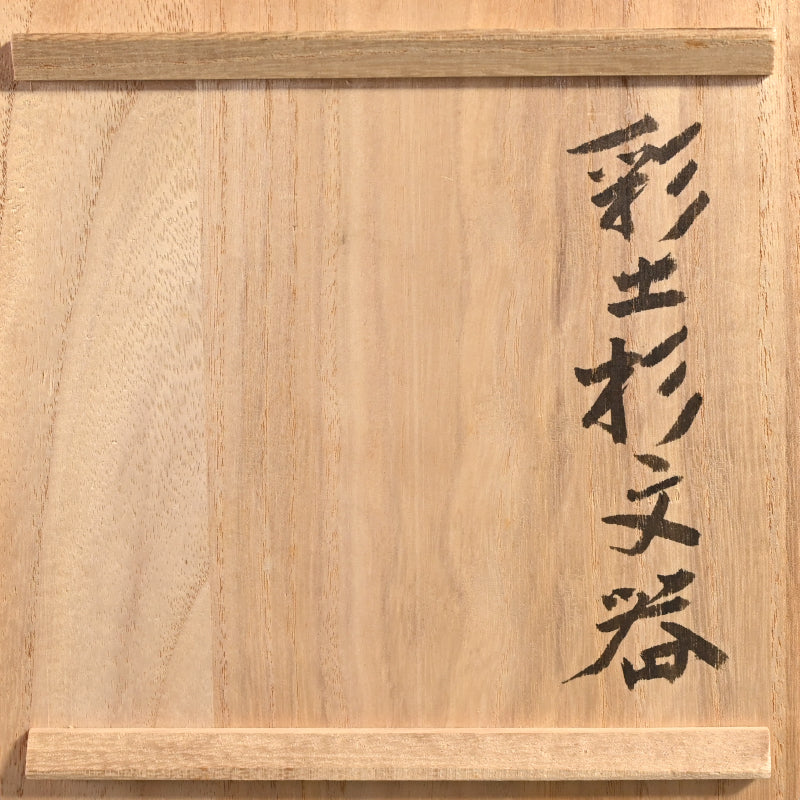 彩土杉文器